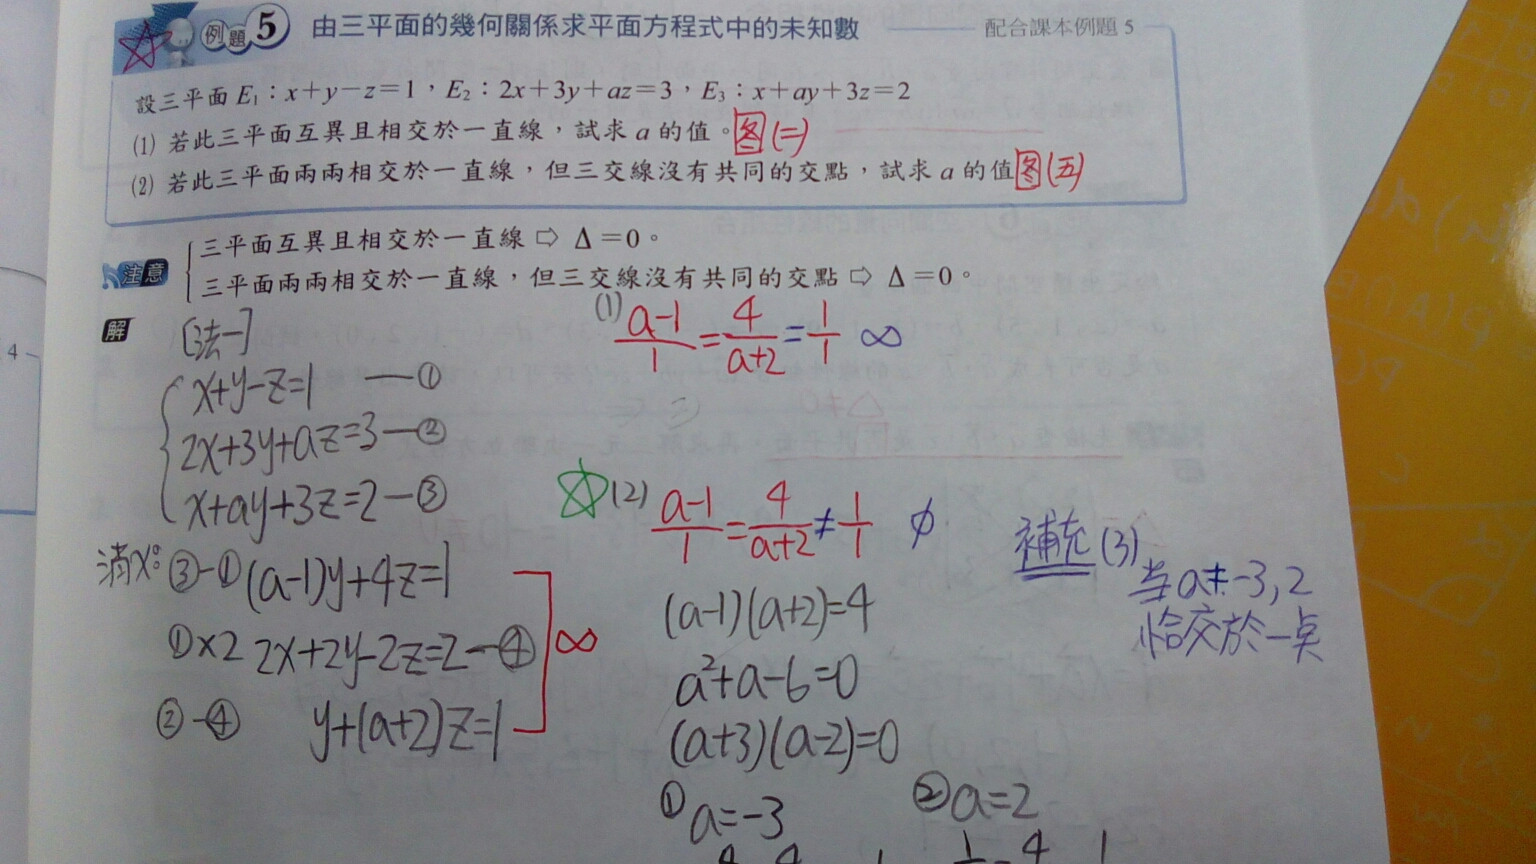 例題5 由三平面的幾何關係求平面方程式中的未知數 配合課本例題 5
設三平面 E₁：x+y−z=1，E₂：2x+3y+az=3，E₃：x+ay+3z=2
(1) 若此三平面互異且相交於一直線，試求 a 的值。图(二)
(2) 若此三平面兩兩相交於一直線，但三交線沒有共同的交點，試求 a 的值 图(五)
注意 三平面互異且相交於一直線 ⇨ Δ=0。
三平面兩兩相交於一直線，但三交線沒有共同的交點 ⇨ Δ=0。
解 [法一]
x+y-z=1 —①
2x+3y+az=3—②
x+ay+3z=2—③
消x: ③-① (a-1)y+4z=1
①×2 2x+2y-2z=2—④
②-④ y+(a+2)z=1
∞
(1) (a-1)/1 = 4/(a+2) = 1/1 ∞
(2) (a-1)/1 = 4/(a+2) ≠ 1/1 ∅
(a-1)(a+2)=4
a²+a-6=0
(a+3)(a-2)=0
① a=-3 ② a=2
補充 (3)
当a≠-3,2
恰交於一点
4